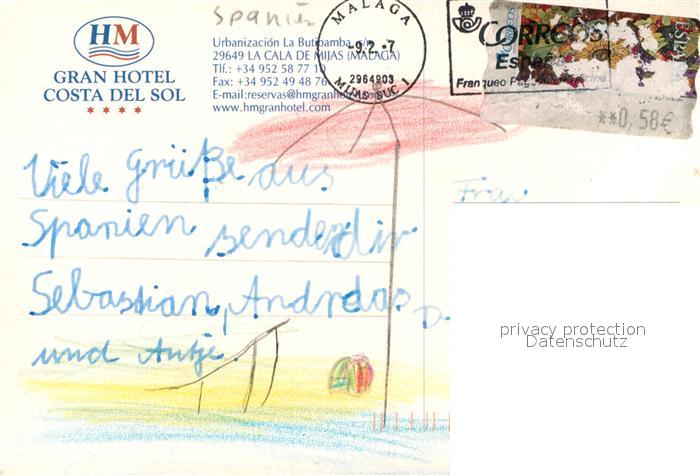 Spanien
HM
GRAN HOTEL
COSTA DEL SOL
Urbanización La Butibamba, s/n
29649 LA CALA DE MIJAS (MALAGA)
Tlf.: +34 952 58 77 
Fax: +34 952 49 48 76
E-mail:reservas@hmgranhotel.com
www.hmgranhotel.com
MALAGA
-9.2.-7
2964903
MIJAS SUC 1
CORREOS
España
Franqueo Pagado
CORREOS
ESPAÑA
**0,58€
Viele Grüße aus
Spanien sendet dir
Sebastian, Andreas
und Antje.
Frau
D-
privacy protection
Datenschutz